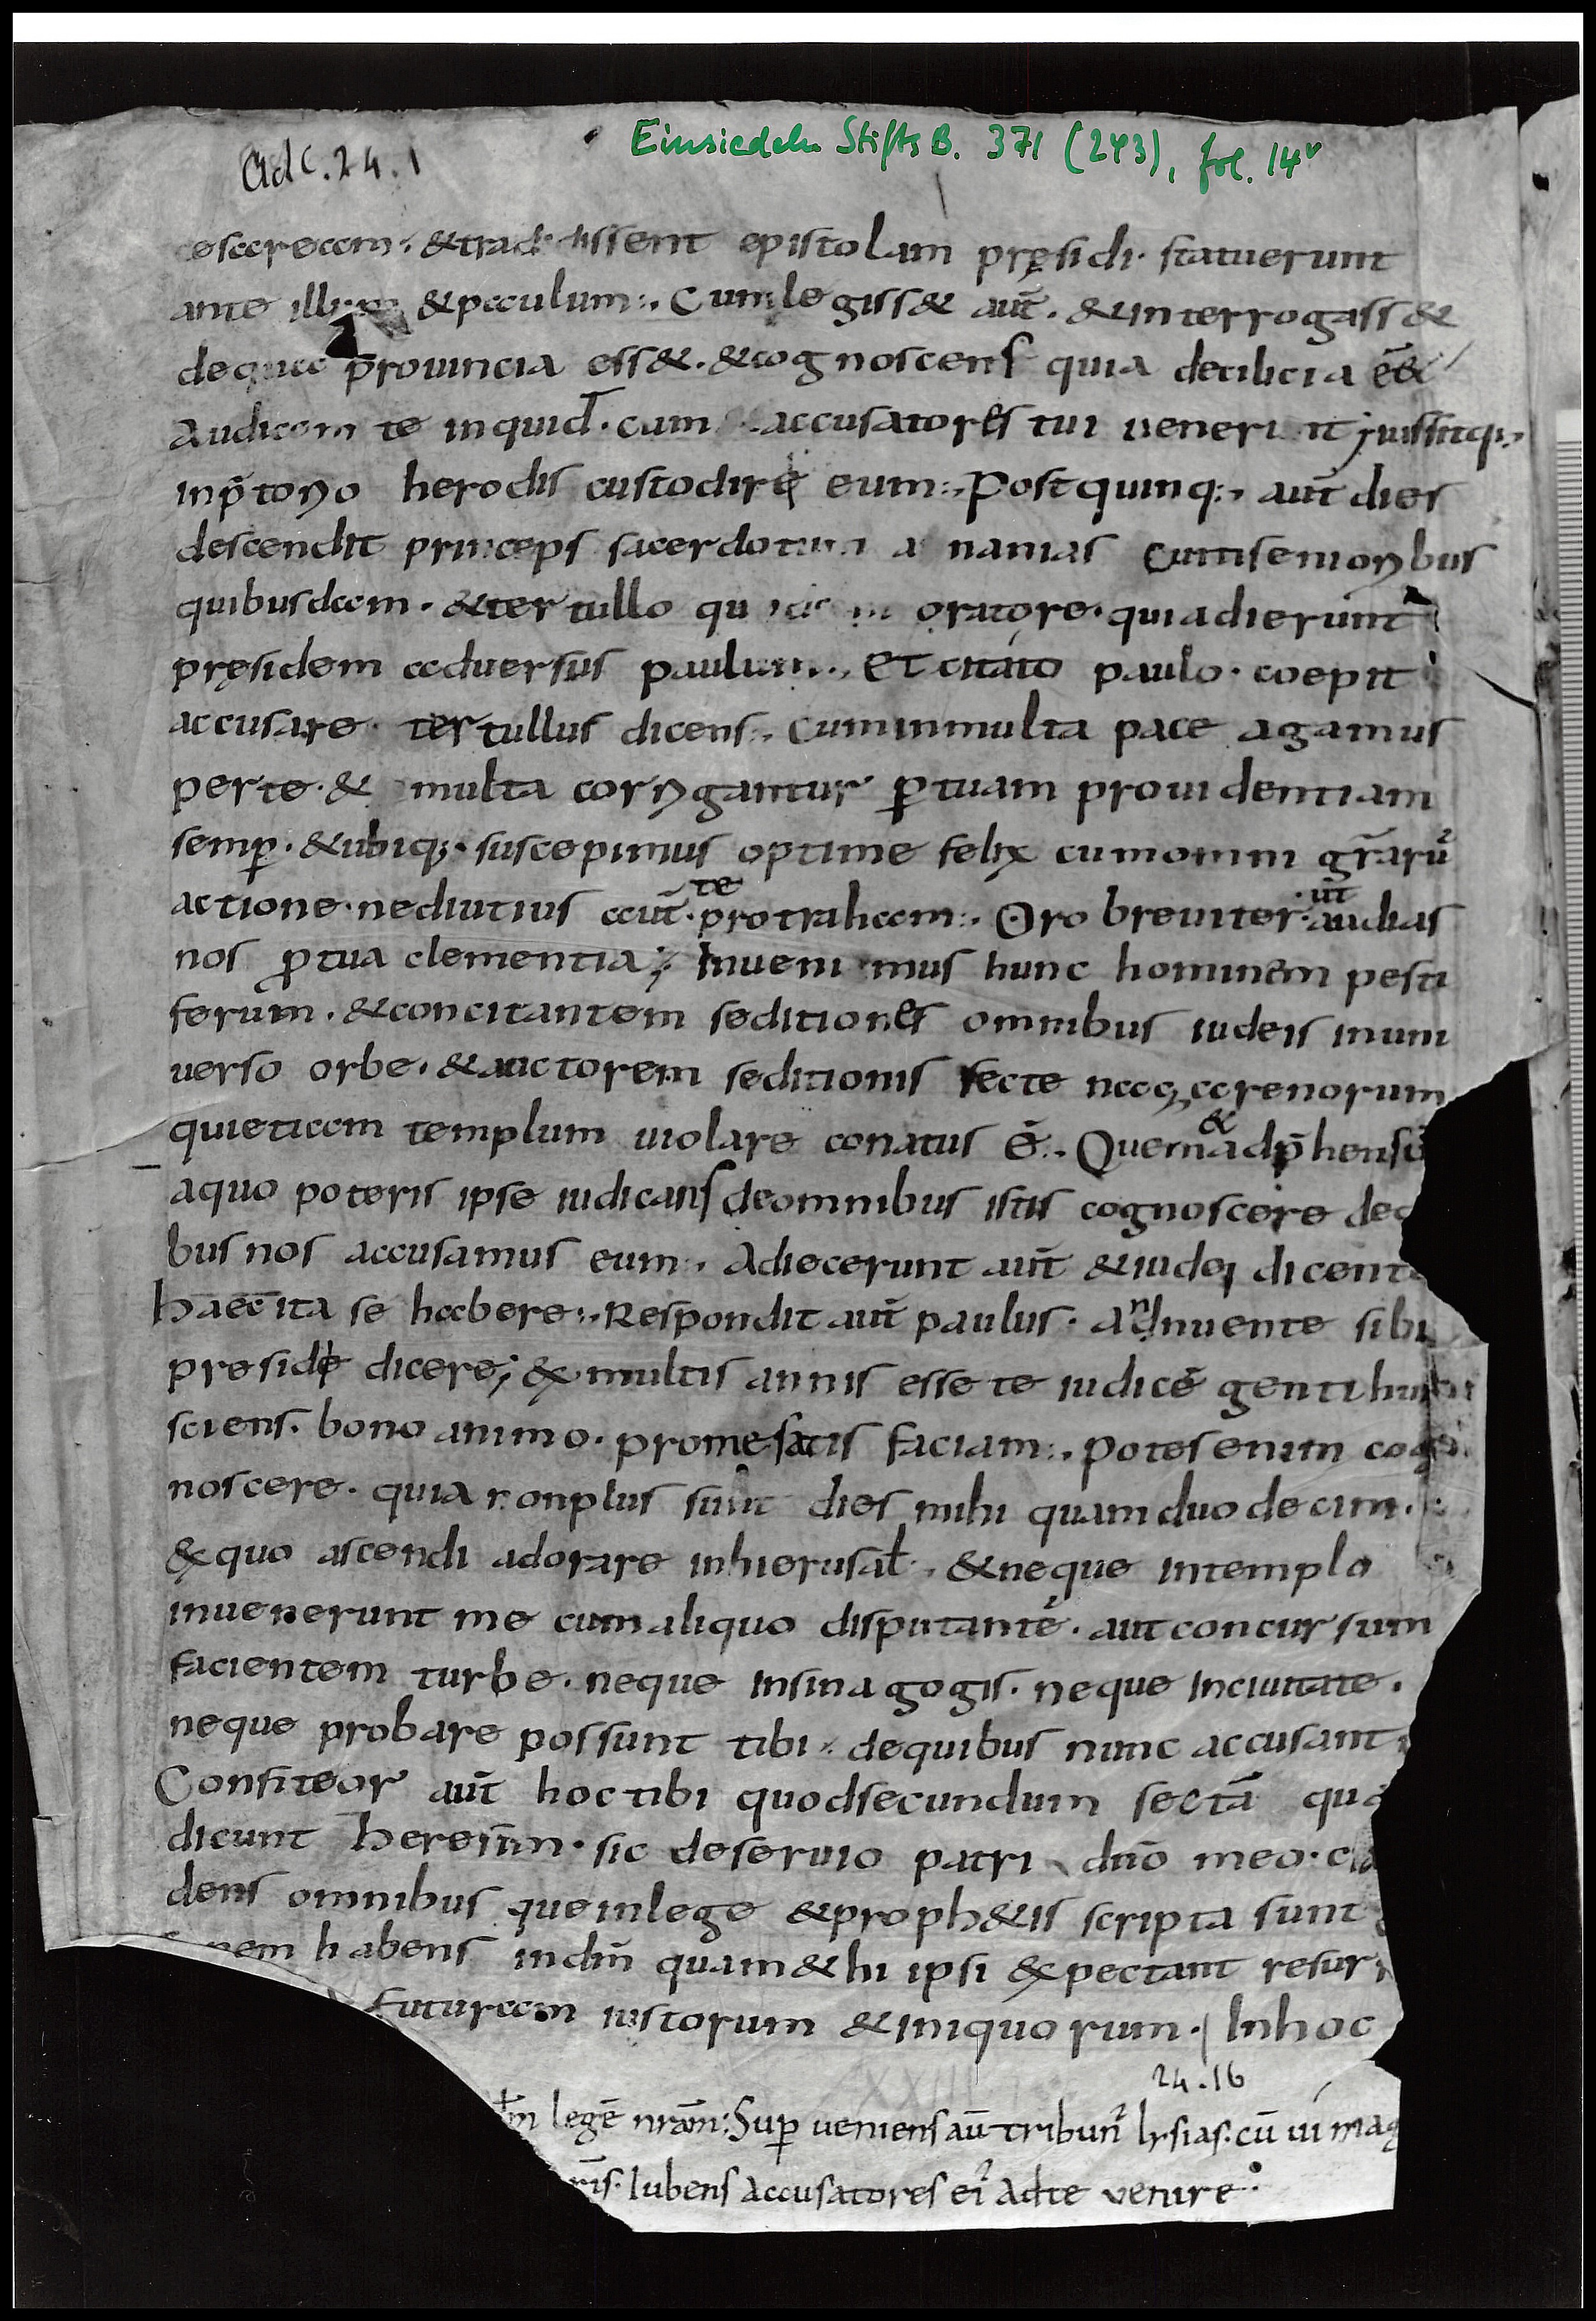 Einsiedeln StiftsB. 371 (243), fol. 14v
Ad c. 24. 1
cesaream. &tradidissent epistolam pręsidi. statuerunt
ante illum &paulum:. Cumlegiss& aut̄. &interrogass&
dequa prouincia ess&. &cognoscens quia decilicia ē&
Audiam te inquid. cum accusatores tui uenerint iussitq;
inp̄torio herodis custodire eum:. Post quinq; aut̄ dies
descendit princeps sacerdotum ananias cumsenioribus
quibusdam. &tertullo quodam oratore. quiadierunt
pręsidem aduersus paulum:. Et citato paulo. coepit
accusare. tertullus dicens:. Cuminmulta pace agamus
perte. & multa corrigantur ꝑtuam prouidentiam
semꝑ. &ubiq;. suscepimus optime felix cumomni gr̄arū
actione. nediutius aut̄. te protraham:. Oro breuiter. ut audias
nos ꝓtua clementia; Inuenimus hunc hominem pesti
ferum. &concitantem seditiones omnibus iudeis inuni
uerso orbe. &auctorem seditionis secte nazarenorum
quietiam templum uiolare conatus ē:. Quem & adp̄hensū
aquo poteris ipse iudicans deomnibus istis cognoscere de
bus nos accusamus eum:. Adiecerunt aut̄ &iudei dicent
haec ita se habere:. Respondit aut̄ paulus. Annuente sibi
preside dicere; &x multis annis esse te iudicē genti hui
sciens. bono animo. prome satis faciam:. Potes enim cog
noscere. quia nonplus sunt dies mihi quam duodecim.
&x quo ascendi adorare inhierusał. &neque intemplo
inuenerunt me cum aliquo disputantē. aut concursum
facientem turbe. neque insinagogis. neque inciuitate.
neque probare possunt tibi. dequibus nunc accusant
Confiteor aut̄ hoc tibi quodsecundum sectā quā
dicunt heresim. sic deseruio patri dn̄o meo. c
dens omnibus que inlege &proph&is scripta sunt
nem habens indm̄ quam &hi ipsi &xpectant resur
futuram iustorum &iniquorum. | Inhoc
24.16
dm̄ legē nr̄am: Suꝑ ueniens aū tribun᾽ lysias. cū ui mag
nr̄is. Iubens accusatores ei᾽ Adte venire.